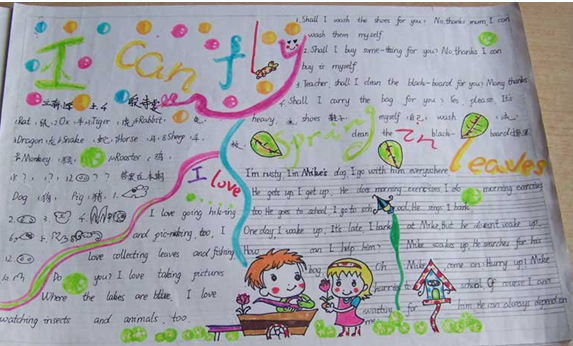 I can fly
1.Shall I wash the shoes for you? No,thanks,mum,I can
wash them myself
2.Shall I buy some-thing for you? No,thanks I can
buy it myself
3.Teacher, shall I clean the black-board for you? Many thanks
4.Shall I carry the bag for you? Yes, please. It's
heavy, shoes 鞋子 myself wash
clean the black-
Spring
In
leaves
Rat, 鼠, 2Ox 牛, Tiger, 虎, Rabbit
Dragon, Snake, 蛇, Horse 马, 8Sheep, 羊
Monkey, 猴 Rooster, 鸡
Dog, 狗, Pig, 猪
I Love
I love going hik-ing
and pic-nicking, too, I
love collecting leaves and fishing
Do you? I love taking pictures
Where the lakes are blue. I love
watching insects and animals, too
I'm rusty I'm Mike's dog. I go with him everywhere
He gets up, I get up. He does morning exercises, I do morning exercises
too. He goes to school, I go to school
One day, I wake up. It's late. I bark at Mike, but he doesn't wake up.
How can I help him? Mike wakes up, he searches for his
Oh Mike, come on. Hurry up! Mike
hurries school Of course I am
waiting for him. He can always depend on
me